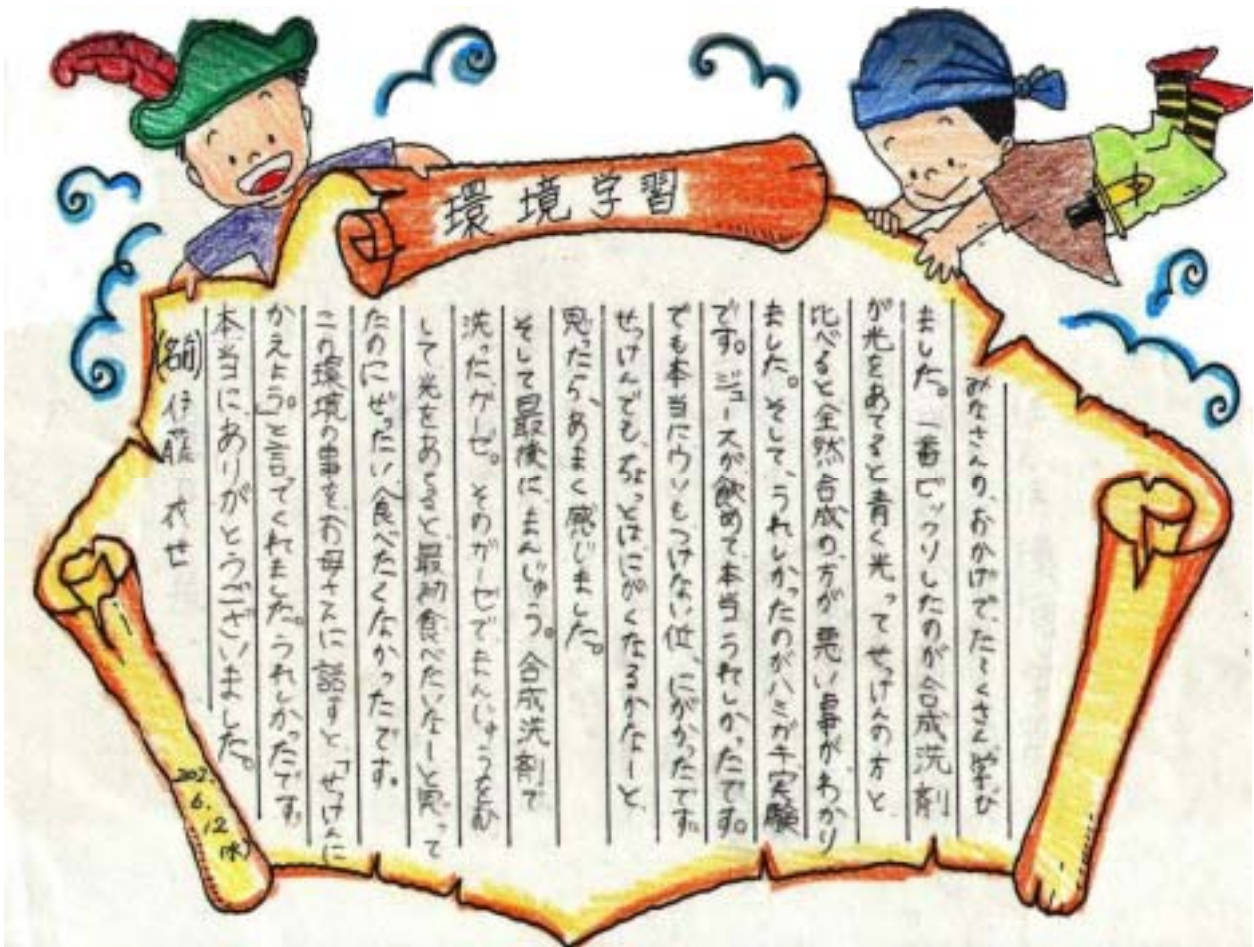 環境学習
みなさんの、おかげで、たくさん学び
ました。一番ビックリしたのが合成洗剤
が光をあてると青く光ってせっけんの方と
比べると全然合成の、方が悪い事がわかり
ました。そして、うれしかったのがハミガキ実験
です。ジュースが飲めて、本当うれしかったです。
でも本当にウソもつけない位、にがかったです。
せっけんでも、ちょっとはにがくなるかなーと、
思ったら、あまく感じました。
そして最後に、まんじゅう。合成洗剤で
洗った、ガーゼ。そのガーゼでまんじゅうをむ
して光をあてると、最初食べたいなーと思って
たのにぜったい食べたくなかったです。
この環境の事をお母さんに話すと「せっけんに
かえよう。」と言てくれました。うれしかったです。
本当に、ありがとうございました。
(名前) 伊藤 衣世
6.12
(水)